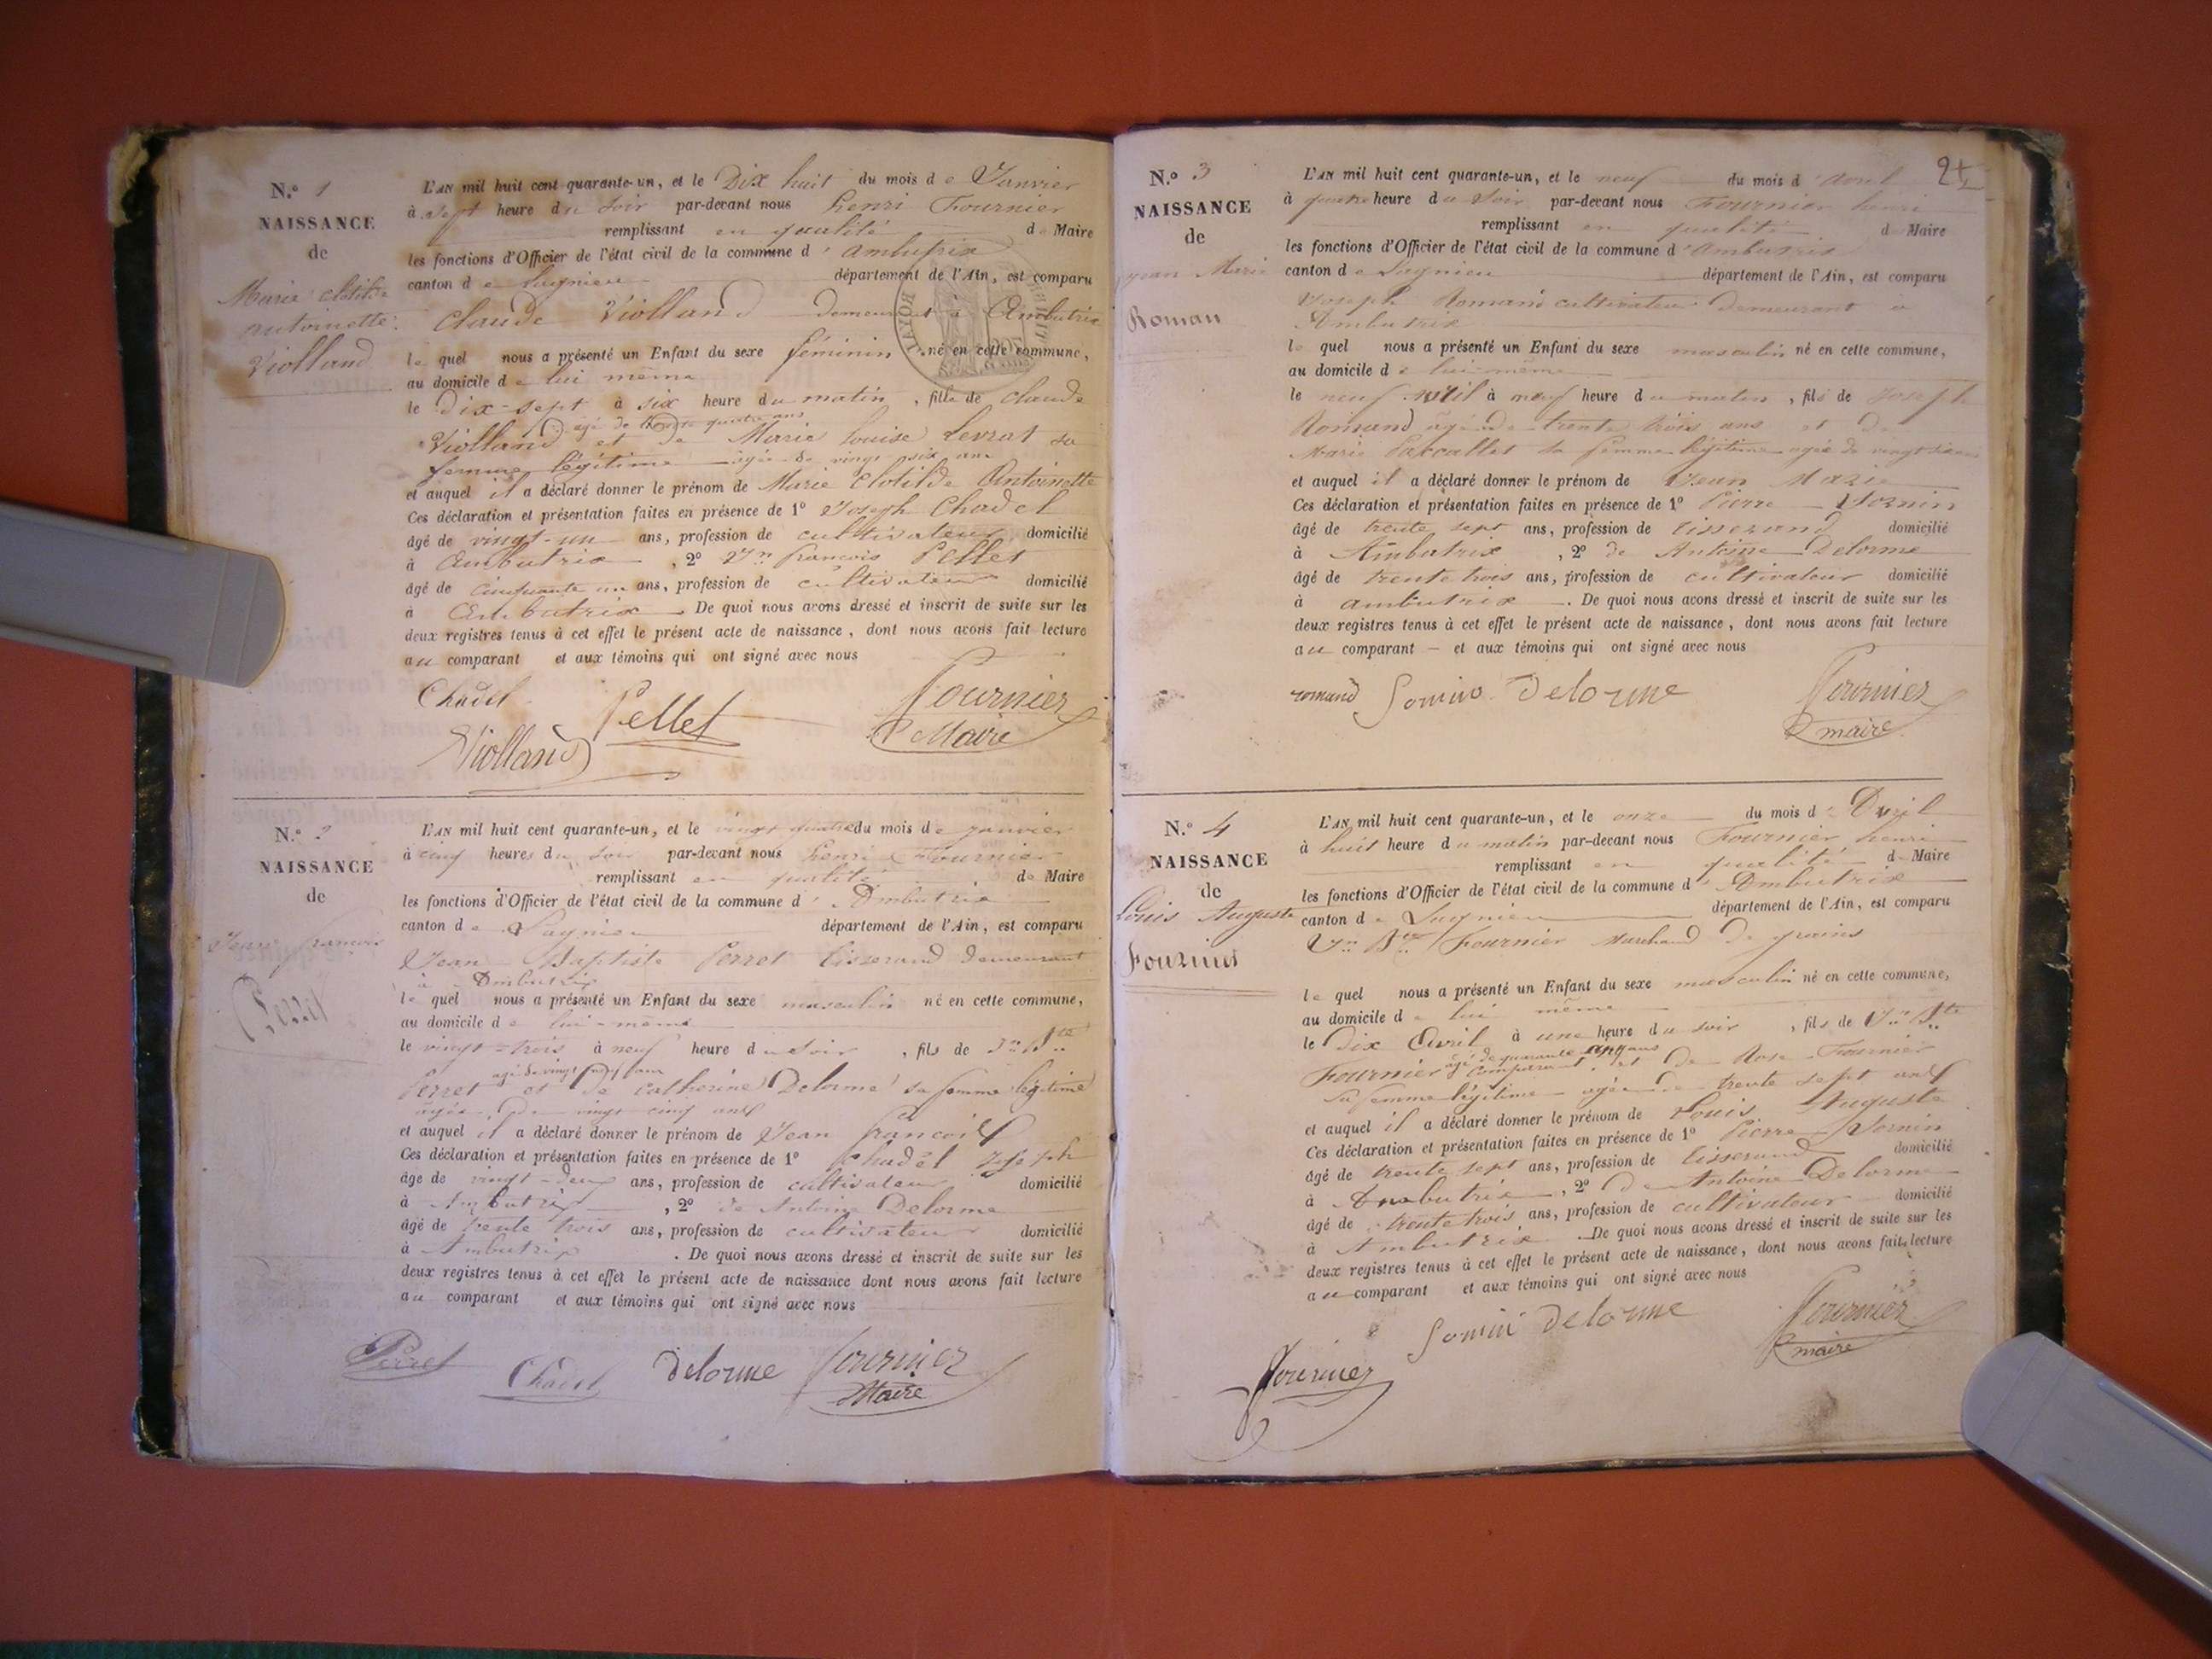 N.º 1
NAISSANCE
de
Marie clotilde
antoinette
Violland
L'AN mil huit cent quarante-un, et le Dix huit du mois de Janvier
à sept heure du soir par-devant nous henri Fournier
remplissant en qualité de Maire
les fonctions d'Officier de l'état civil de la commune d'ambutrix
canton de Lagnieu département de l'Ain, est comparu
claude Violland demeurant à Ambutrix
le quel nous a présenté un Enfant du sexe féminin né en cette commune,
au domicile de lui même
le dix-sept à six heure du matin, fille de claude
agé de trente quatre ans
Violland et de Marie louise Levrat sa
femme légitime agée de vingt six ans
et auquel il a déclaré donner le prénom de Marie Clotilde Antoinette
Ces déclaration et présentation faites en présence de 1º Joseph Chadel
âgé de vingt-un ans, profession de cultivateur domicilié
à Ambutrix, 2º Jn francois Pellet
âgé de cinquante un ans, profession de cultivateur domicilié
à Ambutrix. De quoi nous avons dressé et inscrit de suite sur les
deux registres tenus à cet effet le présent acte de naissance, dont nous avons fait lecture
au comparant et aux témoins qui ont signé avec nous
Chadel Pellet Fournier
Violland Maire
N.º 2
NAISSANCE
de
Jean francois
Perret
L'AN mil huit cent quarante-un, et le vingt quatre du mois de janvier
à cinq heures du soir par-devant nous henri Fournier
remplissant en qualité de Maire
les fonctions d'Officier de l'état civil de la commune d'Ambutrix
canton de Lagnieu département de l'Ain, est comparu
Jean Baptiste Perret tisserand demeurant
à Ambutrix
le quel nous a présenté un Enfant du sexe masculin né en cette commune,
au domicile de lui-même
le vingt-trois à neuf heure du soir, fils de Jn Bte
Perret et de catherine Delorme sa femme légitime
agée de vingt cinq ans
et auquel il a déclaré donner le prénom de Jean francois
Ces déclaration et présentation faites en présence de 1º Chadel Joseph
âgé de vingt-deux ans, profession de cultivateur domicilié
à Ambutrix, 2º de Antoine Delorme
âgé de trente trois ans, profession de cultivateur domicilié
à Ambutrix. De quoi nous avons dressé et inscrit de suite sur les
deux registres tenus à cet effet le présent acte de naissance dont nous avons fait lecture
au comparant et aux témoins qui ont signé avec nous
Perret Chadel Delorme Fournier
Maire
24
N.º 3
NAISSANCE
de
jean Marie
Roman
L'AN mil huit cent quarante-un, et le neuf du mois d'avril
à quatre heure du soir par-devant nous Fournier henri
remplissant en qualité de Maire
les fonctions d'Officier de l'état civil de la commune d'Ambutrix
canton de Lagnieu département de l'Ain, est comparu
Joseph Romand cultivateur demeurant à
Ambutrix
le quel nous a présenté un Enfant du sexe masculin né en cette commune,
au domicile de lui-même
le neuf avril à neuf heure du matin, fils de Joseph
Romand âgé de trente trois ans et de
Marie sa femme légitime agée de vingt
et auquel il a déclaré donner le prénom de Jean Marie
Ces déclaration et présentation faites en présence de 1º Pierre Sornin
âgé de trente sept ans, profession de tisserand domicilié
à Ambutrix, 2º de Antoine Delorme
âgé de trente trois ans, profession de cultivateur domicilié
à ambutrix. De quoi nous avons dressé et inscrit de suite sur les
deux registres tenus à cet effet le présent acte de naissance, dont nous avons fait lecture
au comparant – et aux témoins qui ont signé avec nous
romand Sornin Delorme Fournier
maire
N.º 4
NAISSANCE
de
Louis Auguste
Fournier
L'AN mil huit cent quarante-un, et le onze du mois d'Avril
à huit heure du matin par-devant nous Fournier henri
remplissant en qualité de Maire
les fonctions d'Officier de l'état civil de la commune d'Ambutrix
canton de Lagnieu département de l'Ain, est comparu
Jn Bte Fournier Marchand de grains
le quel nous a présenté un Enfant du sexe masculin né en cette commune,
au domicile de lui même
le dix Avril à une heure du soir, fils de Jn Bte
Fournier comparant et de Rose Fournier
sa femme légitime agée de trente sept ans
et auquel il a déclaré donner le prénom de Louis Auguste
Ces déclaration et présentation faites en présence de 1º Pierre Sornin
âgé de trente sept ans, profession de tisserand domicilié
à Ambutrix, 2º de Antoine Delorme
âgé de trente trois ans, profession de cultivateur domicilié
à Ambutrix. De quoi nous avons dressé et inscrit de suite sur les
deux registres tenus à cet effet le présent acte de naissance, dont nous avons fait lecture
au comparant et aux témoins qui ont signé avec nous
Sornin Delorme Fournier
maire
Fournier